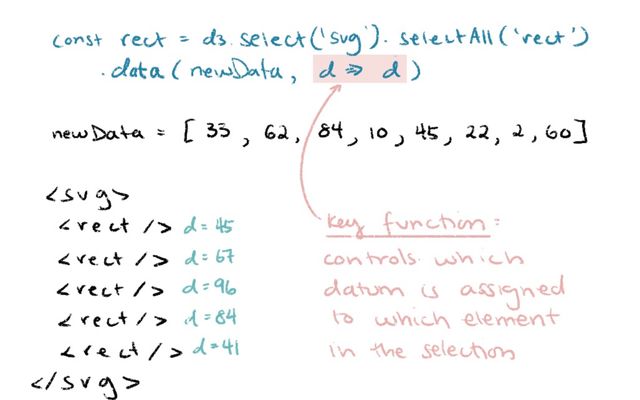 const rect = d3.select('svg').selectAll('rect')
.data(newData, d => d)
newData = [ 35, 62, 84, 10, 45, 22, 2, 60]
<svg>
<rect /> d=45
<rect /> d=67
<rect /> d=96
<rect /> d=84
<rect /> d=41
</svg>
key function:
controls which
datum is assigned
to which element
in the selection